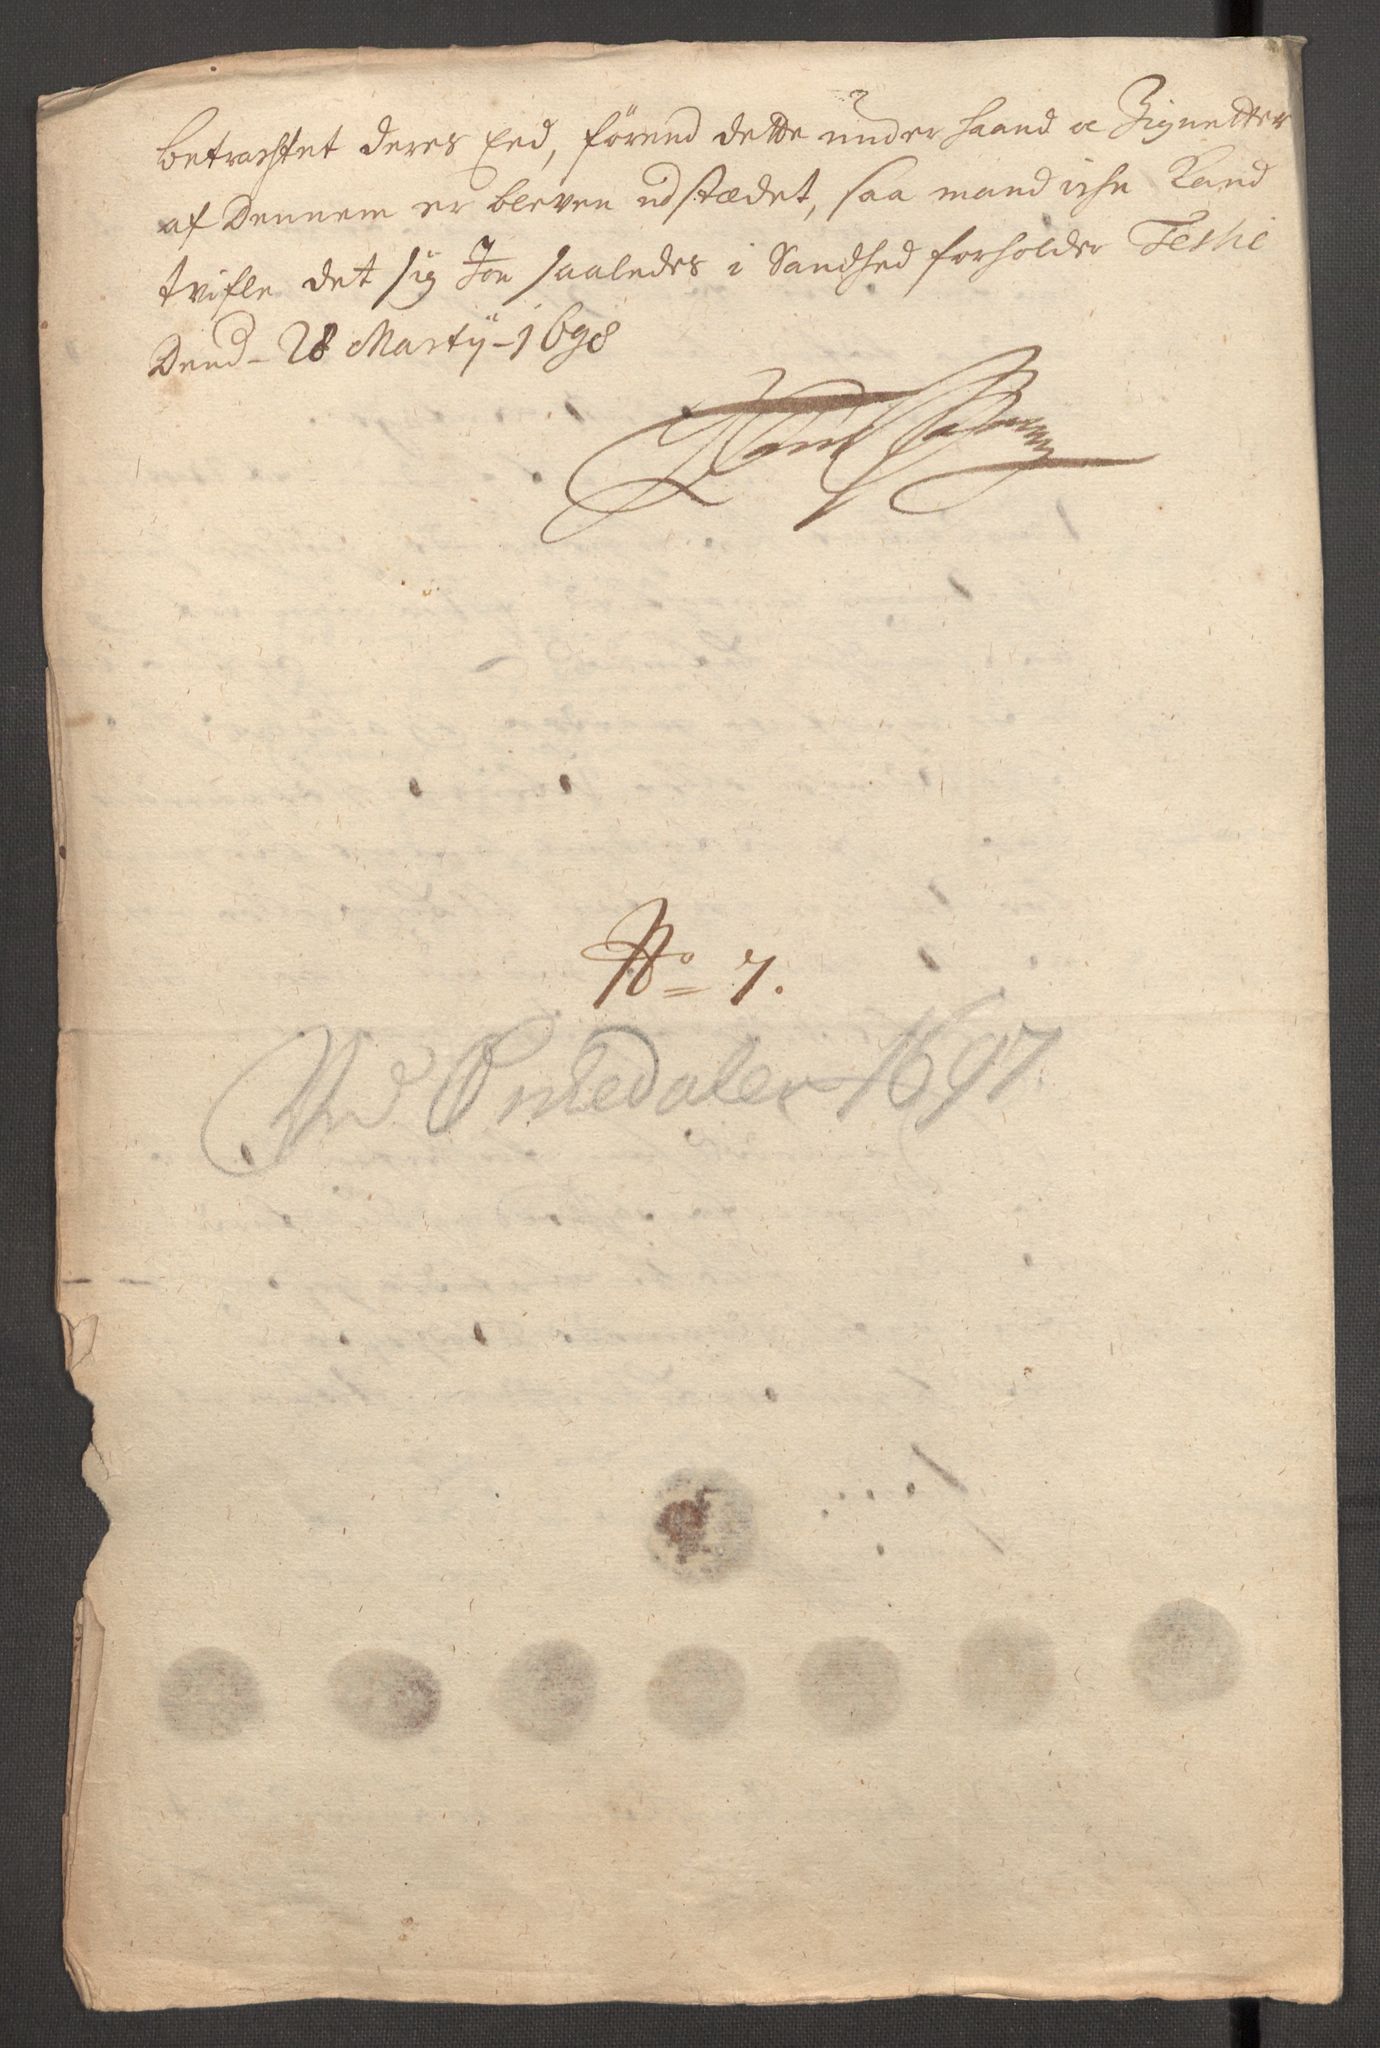 betrachtet deres Eed, förend dette under haand oc Zignetter
af Dennem er bleven udstædet, saa mand iche Kand
tvifle det sig Jon saaledes i Sandhed forholder Teste
Dend - 28 Martij - 1698
No = 7.
Ved Ørkedalen 1697.